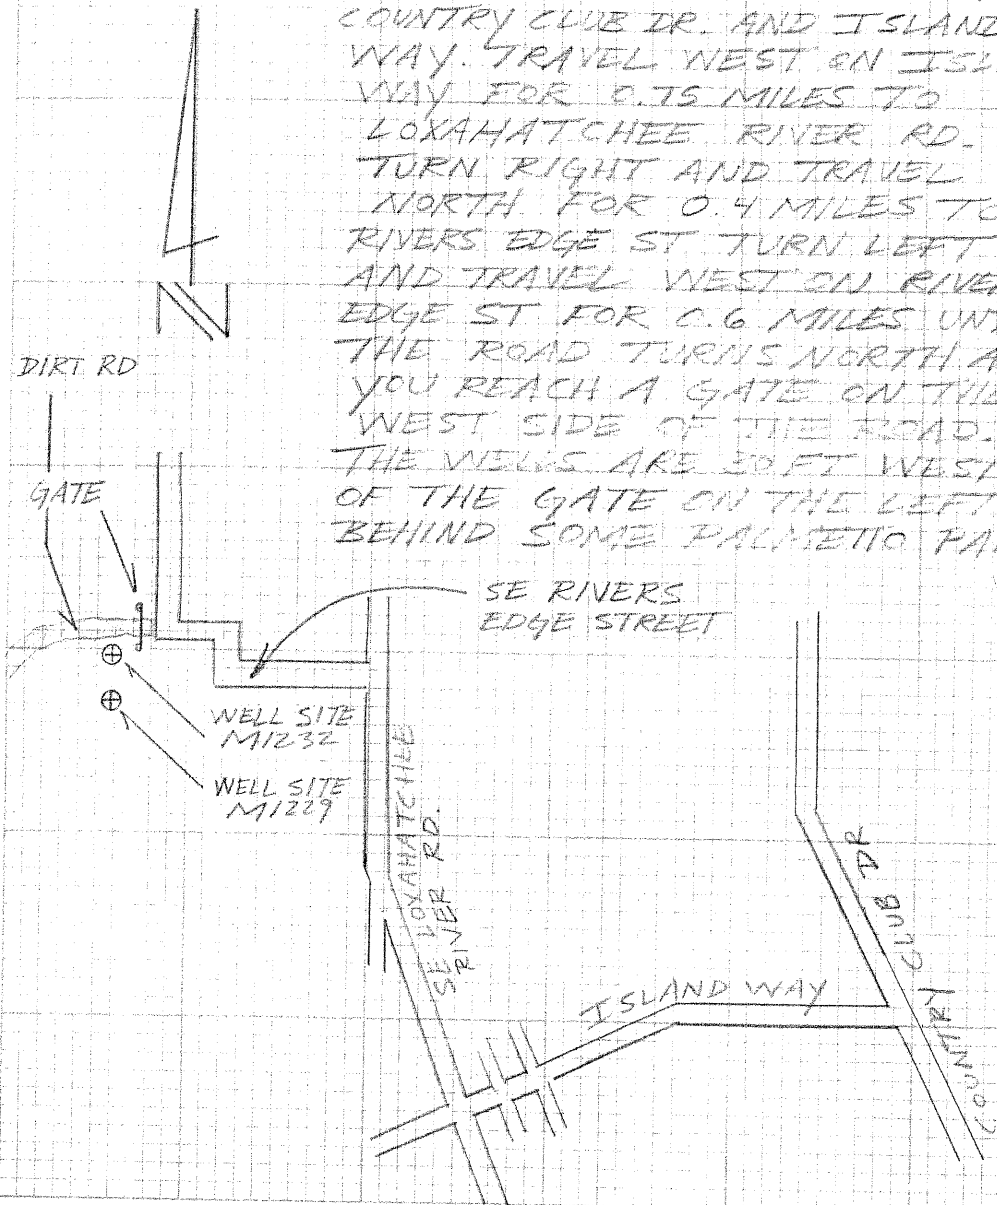 COUNTRY CLUB DR. AND ISLAND
WAY. TRAVEL WEST ON ISL
WAY FOR 0.75 MILES TO
LOXAHATCHEE RIVER RD.
TURN RIGHT AND TRAVEL
NORTH FOR 0.4 MILES TO
RIVERS EDGE ST TURN LEFT
AND TRAVEL WEST ON RIVER
EDGE ST FOR 0.6 MILES UNT
THE ROAD TURNS NORTH A
YOU REACH A GATE ON THE
WEST SIDE OF THE ROAD.
THE WELLS ARE 30 FT WEST
OF THE GATE ON THE LEFT
BEHIND SOME PALMETTO PA
N
DIRT RD
GATE
SE RIVERS
EDGE STREET
WELL SITE
M1232
WELL SITE
M1229
SE LOXAHATCHEE
RIVER RD.
ISLAND WAY
COUNTRY CLUB DR